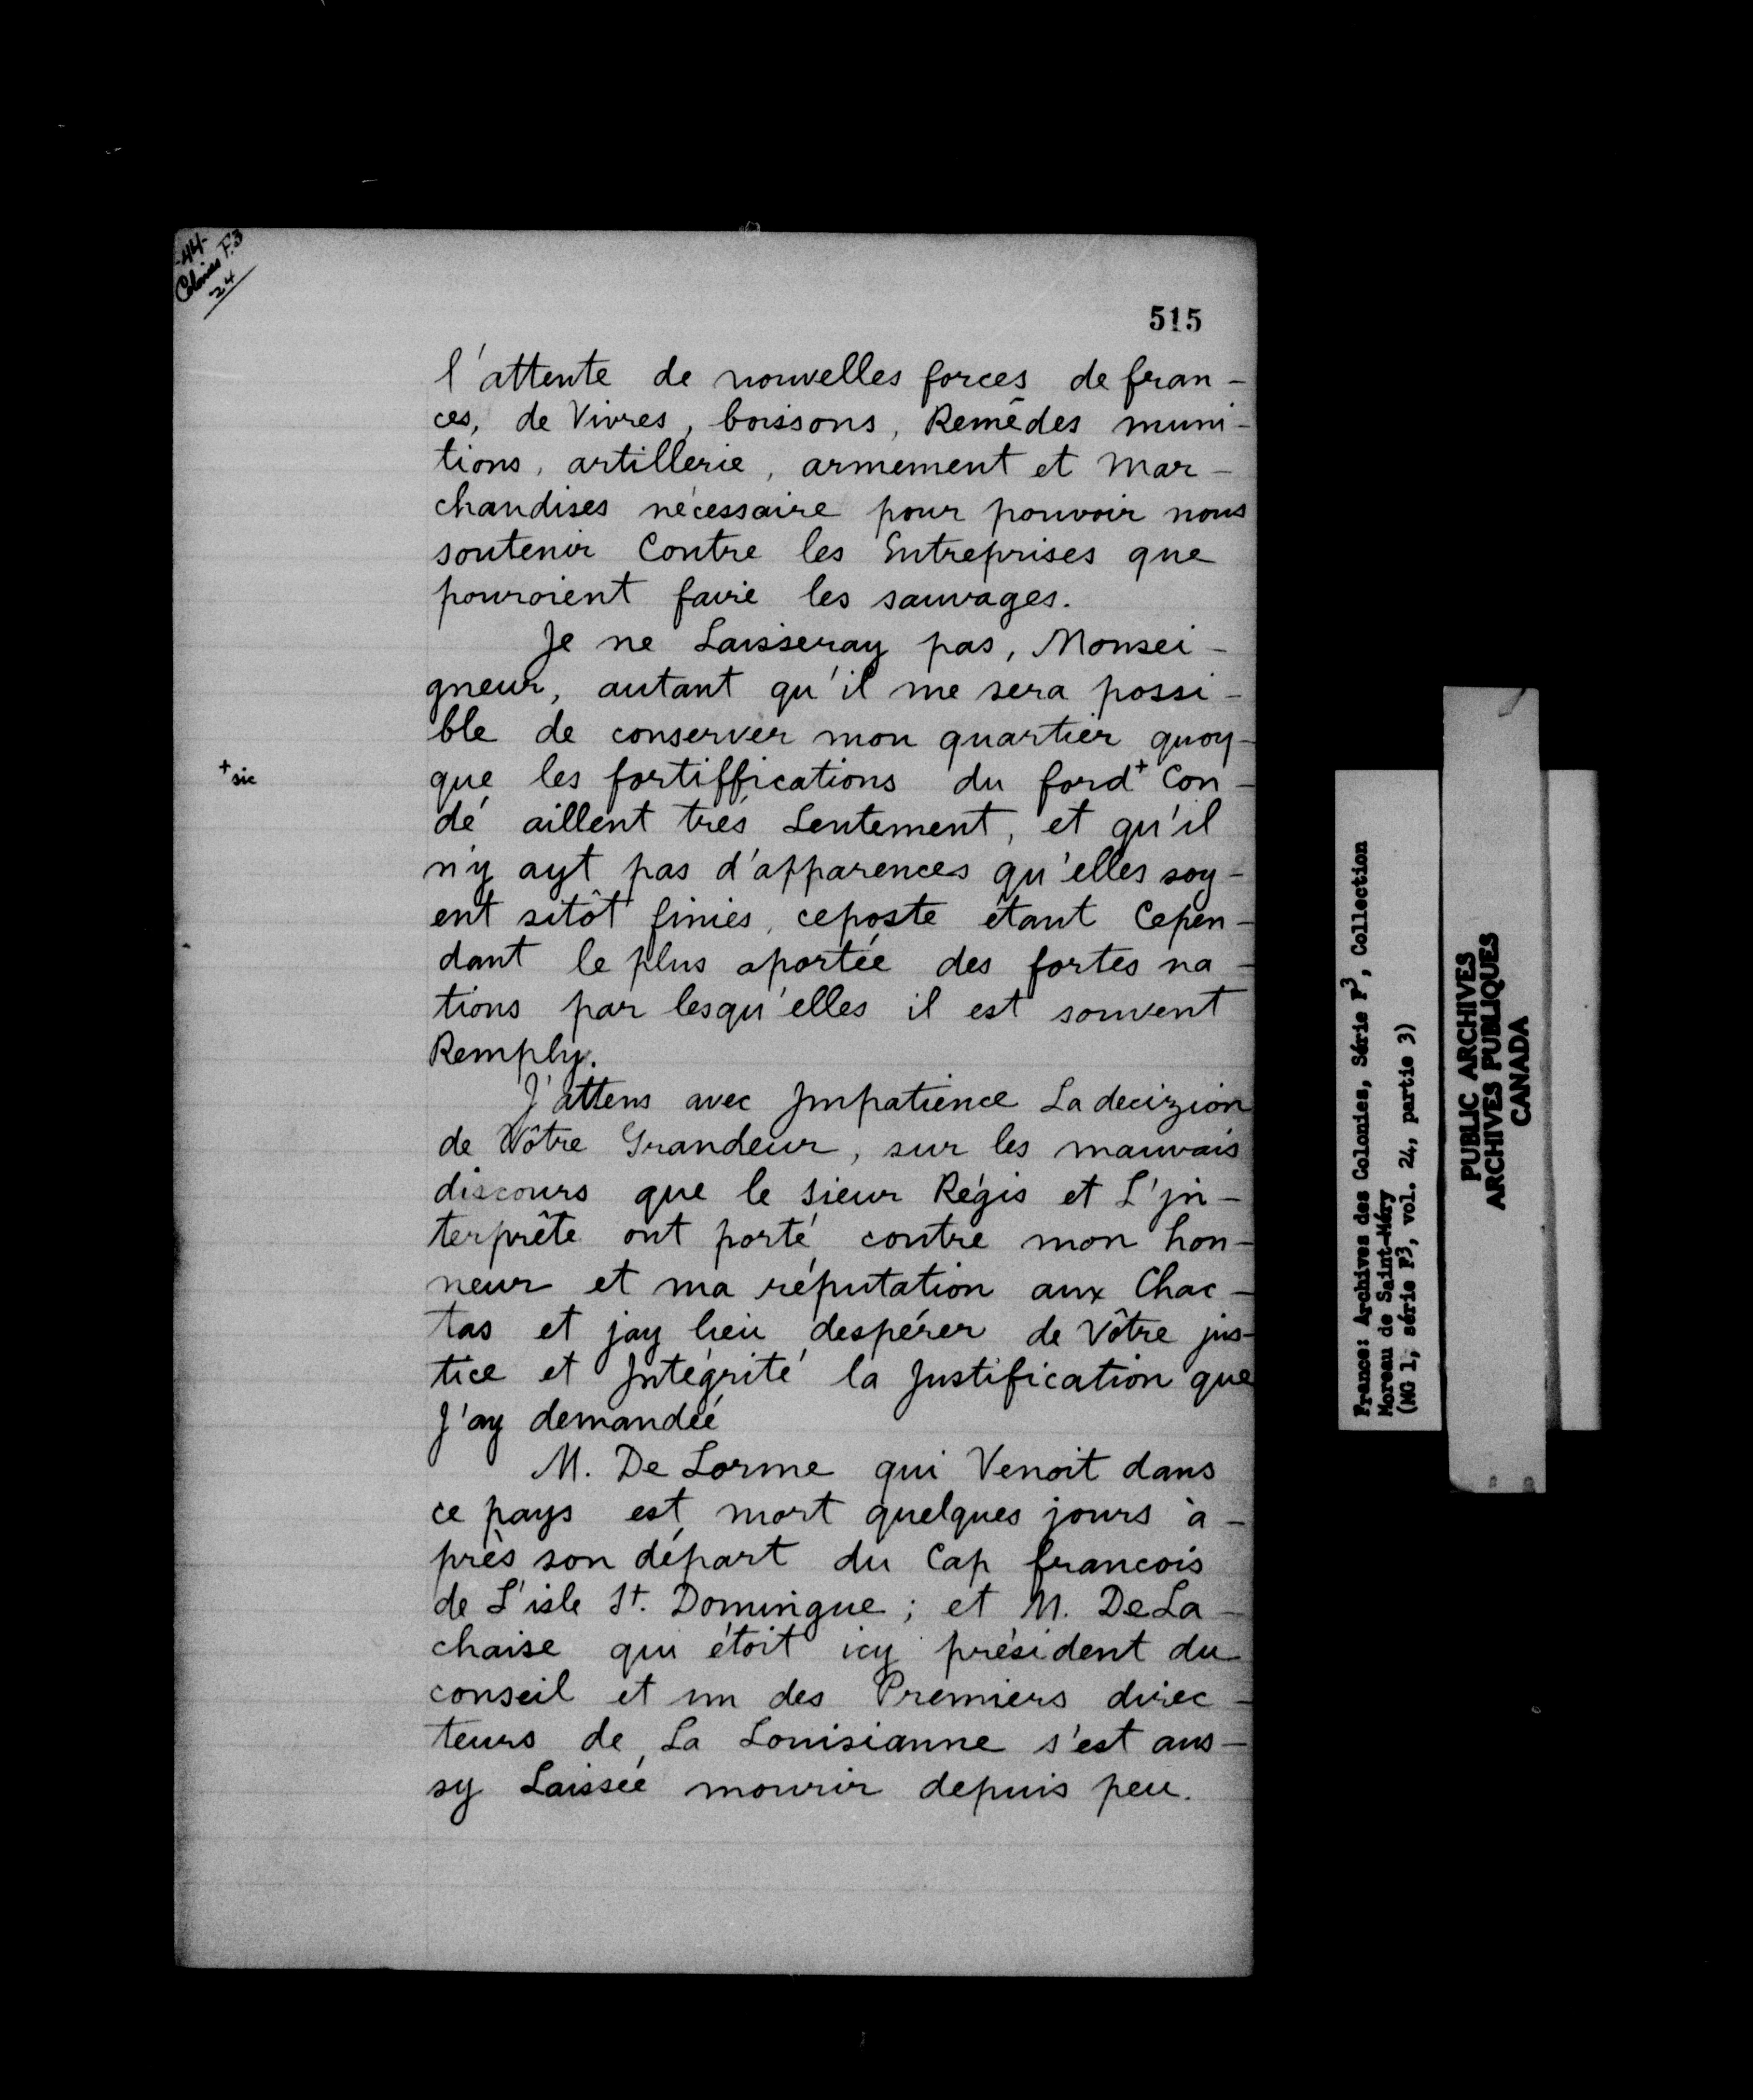 -44-
Colonies F.3
24
515
l'attente de nouvelles forces de fran-
ces, de Vivres, boissons, Remêdes muni-
tions, artillerie, armement et mar-
chandises nécessaire pour pouvoir nous
soutenir Contre les Entreprises que
pouroient faire les sauvages.
Je ne Laisseray pas, Monsei-
gneur, autant qu'il me sera possi-
ble de conserver mon quartier quoy-
+ sic
que les fortiffications du ford+ Con-
dé aillent trés Lentement, et qu'il
n'y ayt pas d'apparences qu'elles soy-
ent sitôt finies, ceposte étant Cepen-
dant le plus aportée des fortes na-
tions par lesqu'elles il est souvent
Remply.
J'attens avec Jmpatience La decizion
de Vôtre Grandeur, sur les mauvais
discours que le Sieur Régis et L'jn-
terprête ont porté contre mon hon-
neur et ma réputation aux Chac-
tas et jay lieu despérer de Vôtre jus-
tice et Jntégrité la Justification que
J'ay demandée
M. De Lorme qui Venoit dans
ce pays est mort quelques jours à-
près son départ du Cap francois
de L'isle St. Domingue; et M. De La-
chaise qui étoit icy président du
conseil et un des Premiers direc-
teurs de La Louisianne s'est aus-
sy Laissée mourir depuis peu.
France: Archives des Colonies, Série F3, Collection
Moreau de Saint-Méry
(MG 1, série F3, vol. 24, partie 3)
PUBLIC ARCHIVES
ARCHIVES PUBLIQUES
CANADA